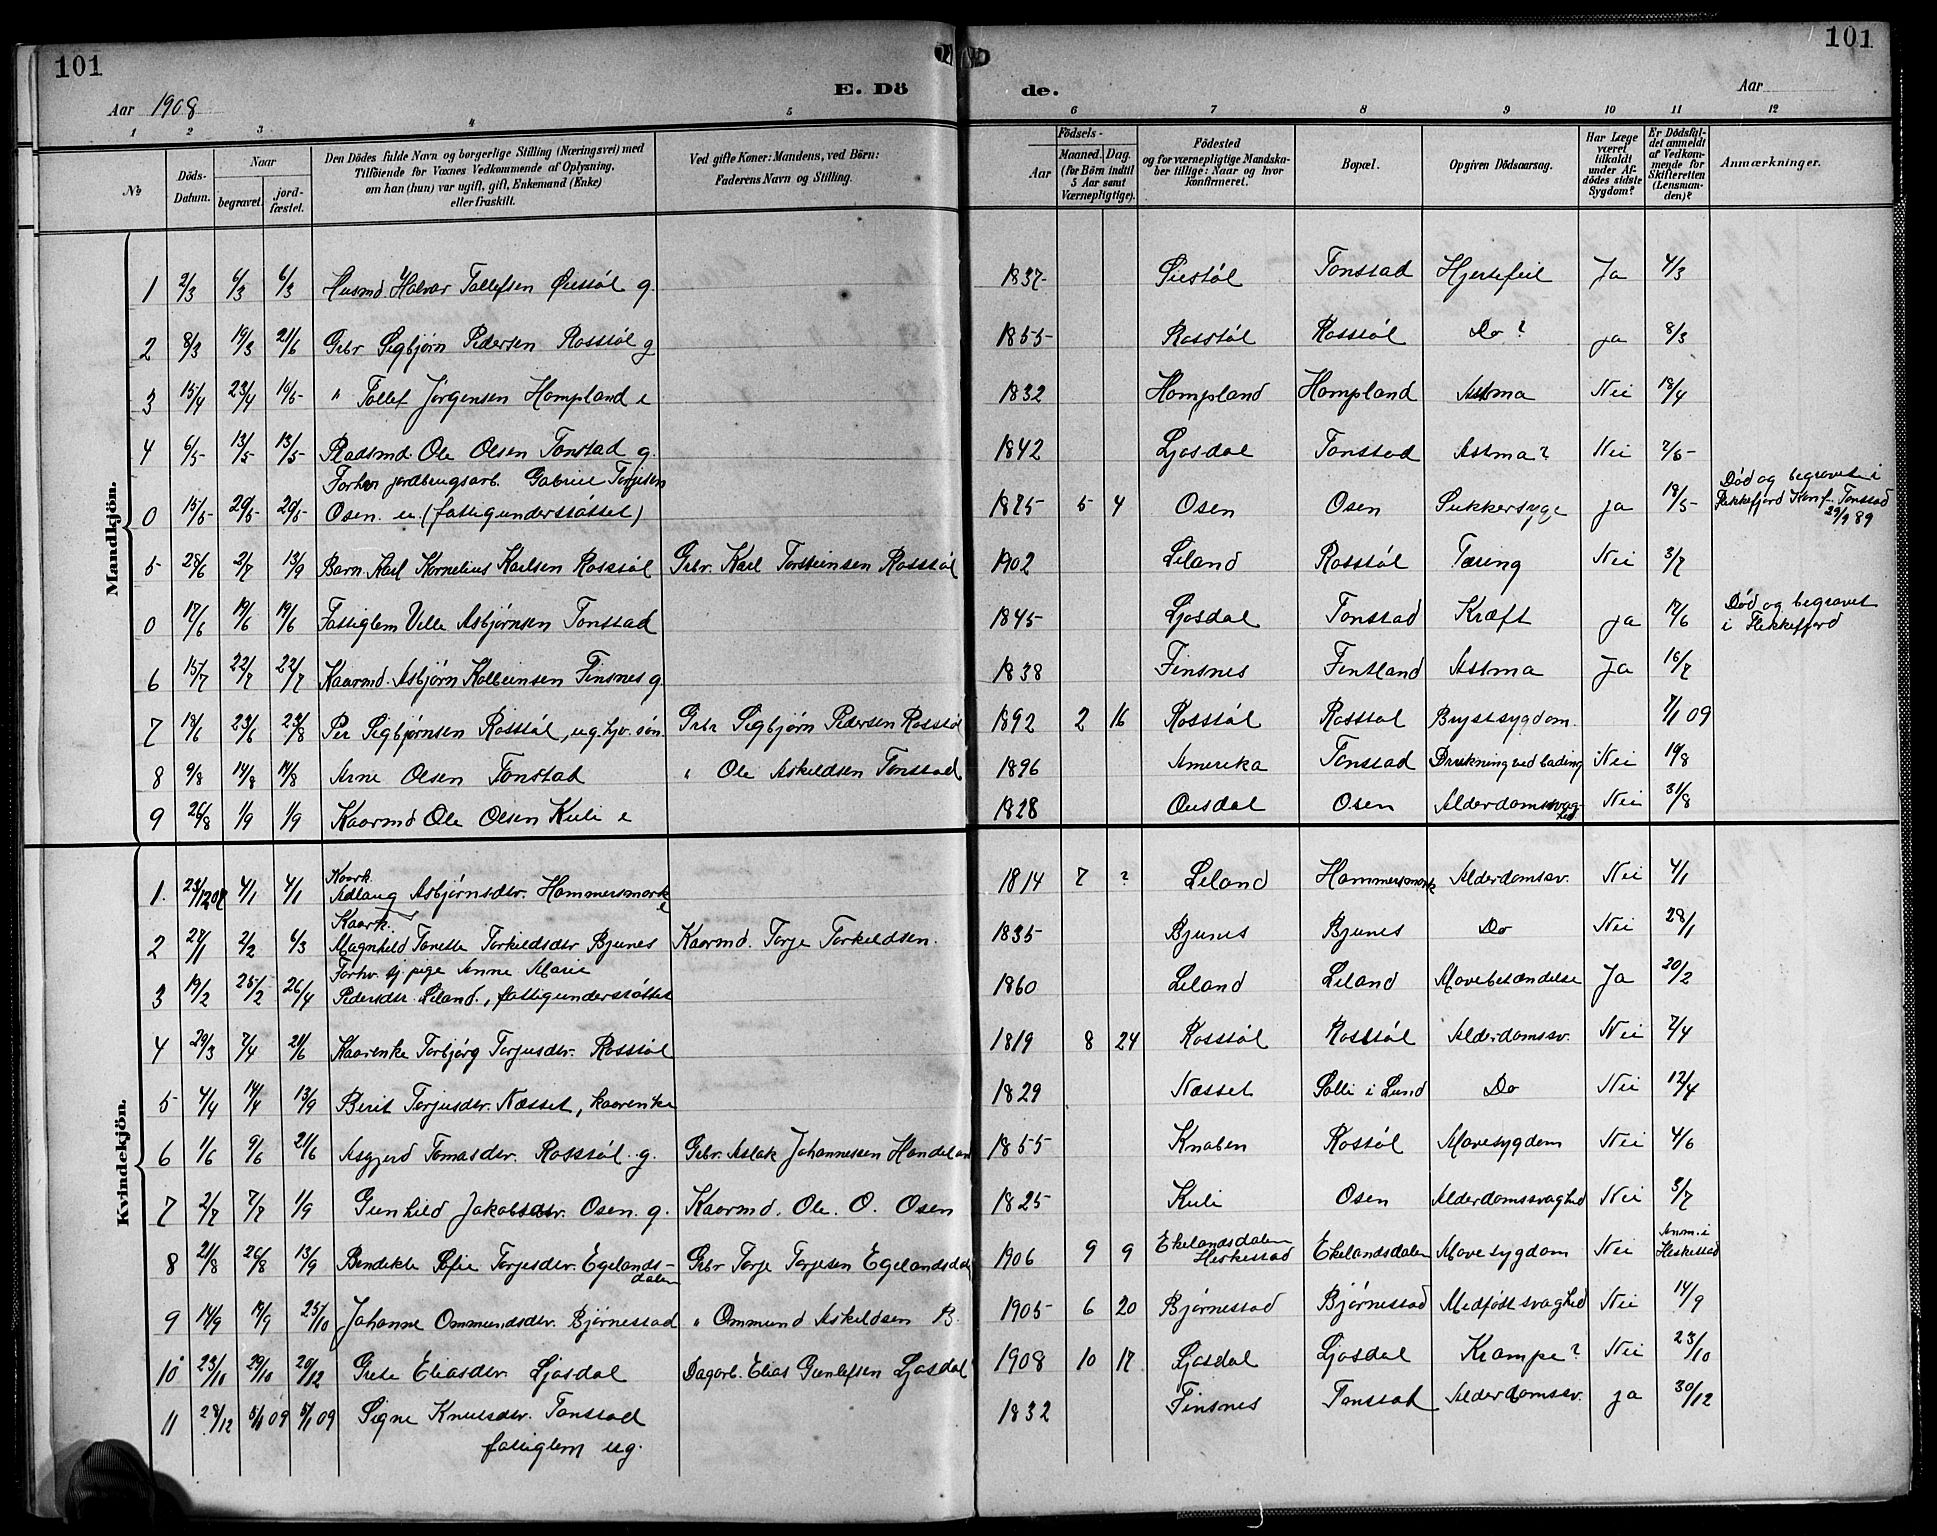 101
101
Aar 1908
E. Dö
de.
Aar
1 2 3 4 5 6 7 8 9 10 11 12
№
Döds-Datum.
Naar
begravet.
jord-fæstet.
Den Dödes fulde Navn og borgerlige Stilling (Næringsvei) med
Tilföiende for Voxnes Vedkommende af Oplysning,
om han (hun) var ugift, gift, Enkemand (Enke)
eller fraskilt.
Ved gifte Koner: Mandens, ved Börn:
Faderens Navn og Stilling.
Födsels-
Aar
Maaned. Dag.
(for Börn indtil
5 Aar samt
Værnepligtige).
Födested
og for værnepligtige Mandska-
ber tillige: Naar og hvor
konfirmeret.
Bopæl.
Opgiven Dödsaarsag.
Har Læge
været
tilkaldt
under Af-
dödes sidste
Sygdom?
Er Dödsfal-
det anmeldt
af Vedkom-
mende for
Skifteretten
(Lensman-
den)?
Anmærkninger.
Mandkjön.
1 2/3 6/3 6/3 Husmd. Halvar Tollefsen Øiestøl g. 1837 Øiestøl Tonstad Hjertefeil Ja 4/3
2 8/3 19/3 21/6 Grbr Sigbjørn Pedersen Rosstøl g 1855 Rosstøl Rosstøl Do? ja 8/3
3 15/4 23/4 19/5 " Tollef Jørgensen Hompland e 1832 Hompland Hompland Astma Nei 18/4
4 6/5 13/5 13/5 Radsmd. Ole Olsen Tonstad g. 1842 Ljosdal Tonstad Astma? Nei 7/5
Forhen jordbrugsarb. Gabriel Torjesen
0 15/5 20/5 20/5 Osen. u. (fattigunderstøttet) 1875 5 4 Osen Osen Sukkersyge ja 18/5 Død og begravet i
Flekkefjord Konf. Tonstad
29/9 89
5 28/6 2/7 13/9 Barn Karl Kornelius Karlsen Rosstøl Grbr. Karl Torsteinsen Rosstøl 1902 Liland Rosstøl Tæring Nei 3/7
0 17/6 19/6 19/6 Fattiglem Ville Asbjørnsen Tonstad 1845 Ljosdal Tonstad Kræft ja 17/6 Død og begravet
i Flekkefjord
6 15/7 22/7 22/7 Kaarmd. Asbjørn Kolbeinsen Finsnes g. 1838 Finsnes Fintland Astma Ja 16/7
7 18/6 23/6 23/8 Per Sigbjørnsen Rosstøl, ug. hjv. søn Grbr Sigbjørn Pedersen Rosstøl 1892 2 16 Rosstøl Rosstøl Brystsygdom. 7/1 09
8 9/8 14/8 14/8 Arne Olsen Tonstad " Ole Askildsen Tonstad 1896 Amerika Tonstad Drukning ved bading Nei 19/8
9 26/8 1/9 1/9 Kaarmd Ole Olsen Kuli e 1828 Ousdal Osen Alderdomssvag-
hed Nei 31/8
Kvindekjön.
Kaark.
1. 23/12 07 4/1 4/1 Adlaug Asbjørnsdtr. Hammersmark e 1814 7 ? Liland Hammersmark Alderdomsv. Nei 4/1
Kaark.
2 27/1 2/2 6/3 Magnhild Tonette Torkildsdtr Bjunes Kaarmd. Torje Torkildsen. 1835 Bjunes Bjunes Do Nei 28/1
Forhv. tj. pige Anne Marie
3 19/2 25/2 26/4 Pedersdtr. Liland., fattigunderstøttet 1860 Liland Liland Mavebetændelse Ja 20/2
4 29/3 7/4 21/6 Kaarenke Torbjørg Torjusdtr. Rosstøl 1819 8 24 Rosstøl Rosstøl Alderdomssv. Nei 7/4
5 4/4 14/4 13/9 Berit Torjusdtr. Næsset, kaarenke 1829 Næsset Solli i Lund Do Nei 12/4
6 1/6 9/6 21/6 Asgjerd Tomasdtr. Rosstøl. g. Grbr. Aslak Johannessen Handeland 1855 Knaben Rosstøl Mavesygdom Nei 4/6
7 2/7 7/7 1/9 Gunhild Jakobsdtr. Osen. g. Kaarmd. Ole. O. Osen 1825 Kuli Osen Alderdomssvaghed Nei 3/7
8 21/8 26/8 13/9 Bendikte Sofie Torjesdtr. Egelands-
dalen Grbr Torje Torjesen Egelandsdal 1906 9 9 Ekelandsdalen
Heskestad Ekelandsdalen Mavesygdom Nei Anm. i
Heskestad
9 14/9 19/9 25/10 Johanne Ommundsdtr. Bjørnestad " Ommund Askildsen B. 1905 6 20 Bjørnestad Bjørnestad Medfødt svaghed Nei 14/9
10 23/10 29/10 20/12 Grete Eliasdtr. Ljosdal Dagarb. Elias Gunlefsen Ljosdal 1908 10 17 Ljosdal Ljosdal Krampe? Nei 23/10
11 28/12 5/1 09 5/1 09 Signe Knutsdtr. Tonstad 1832 Finsnes Tonstad Alderdomssv. ja 30/12
fattiglem ug.